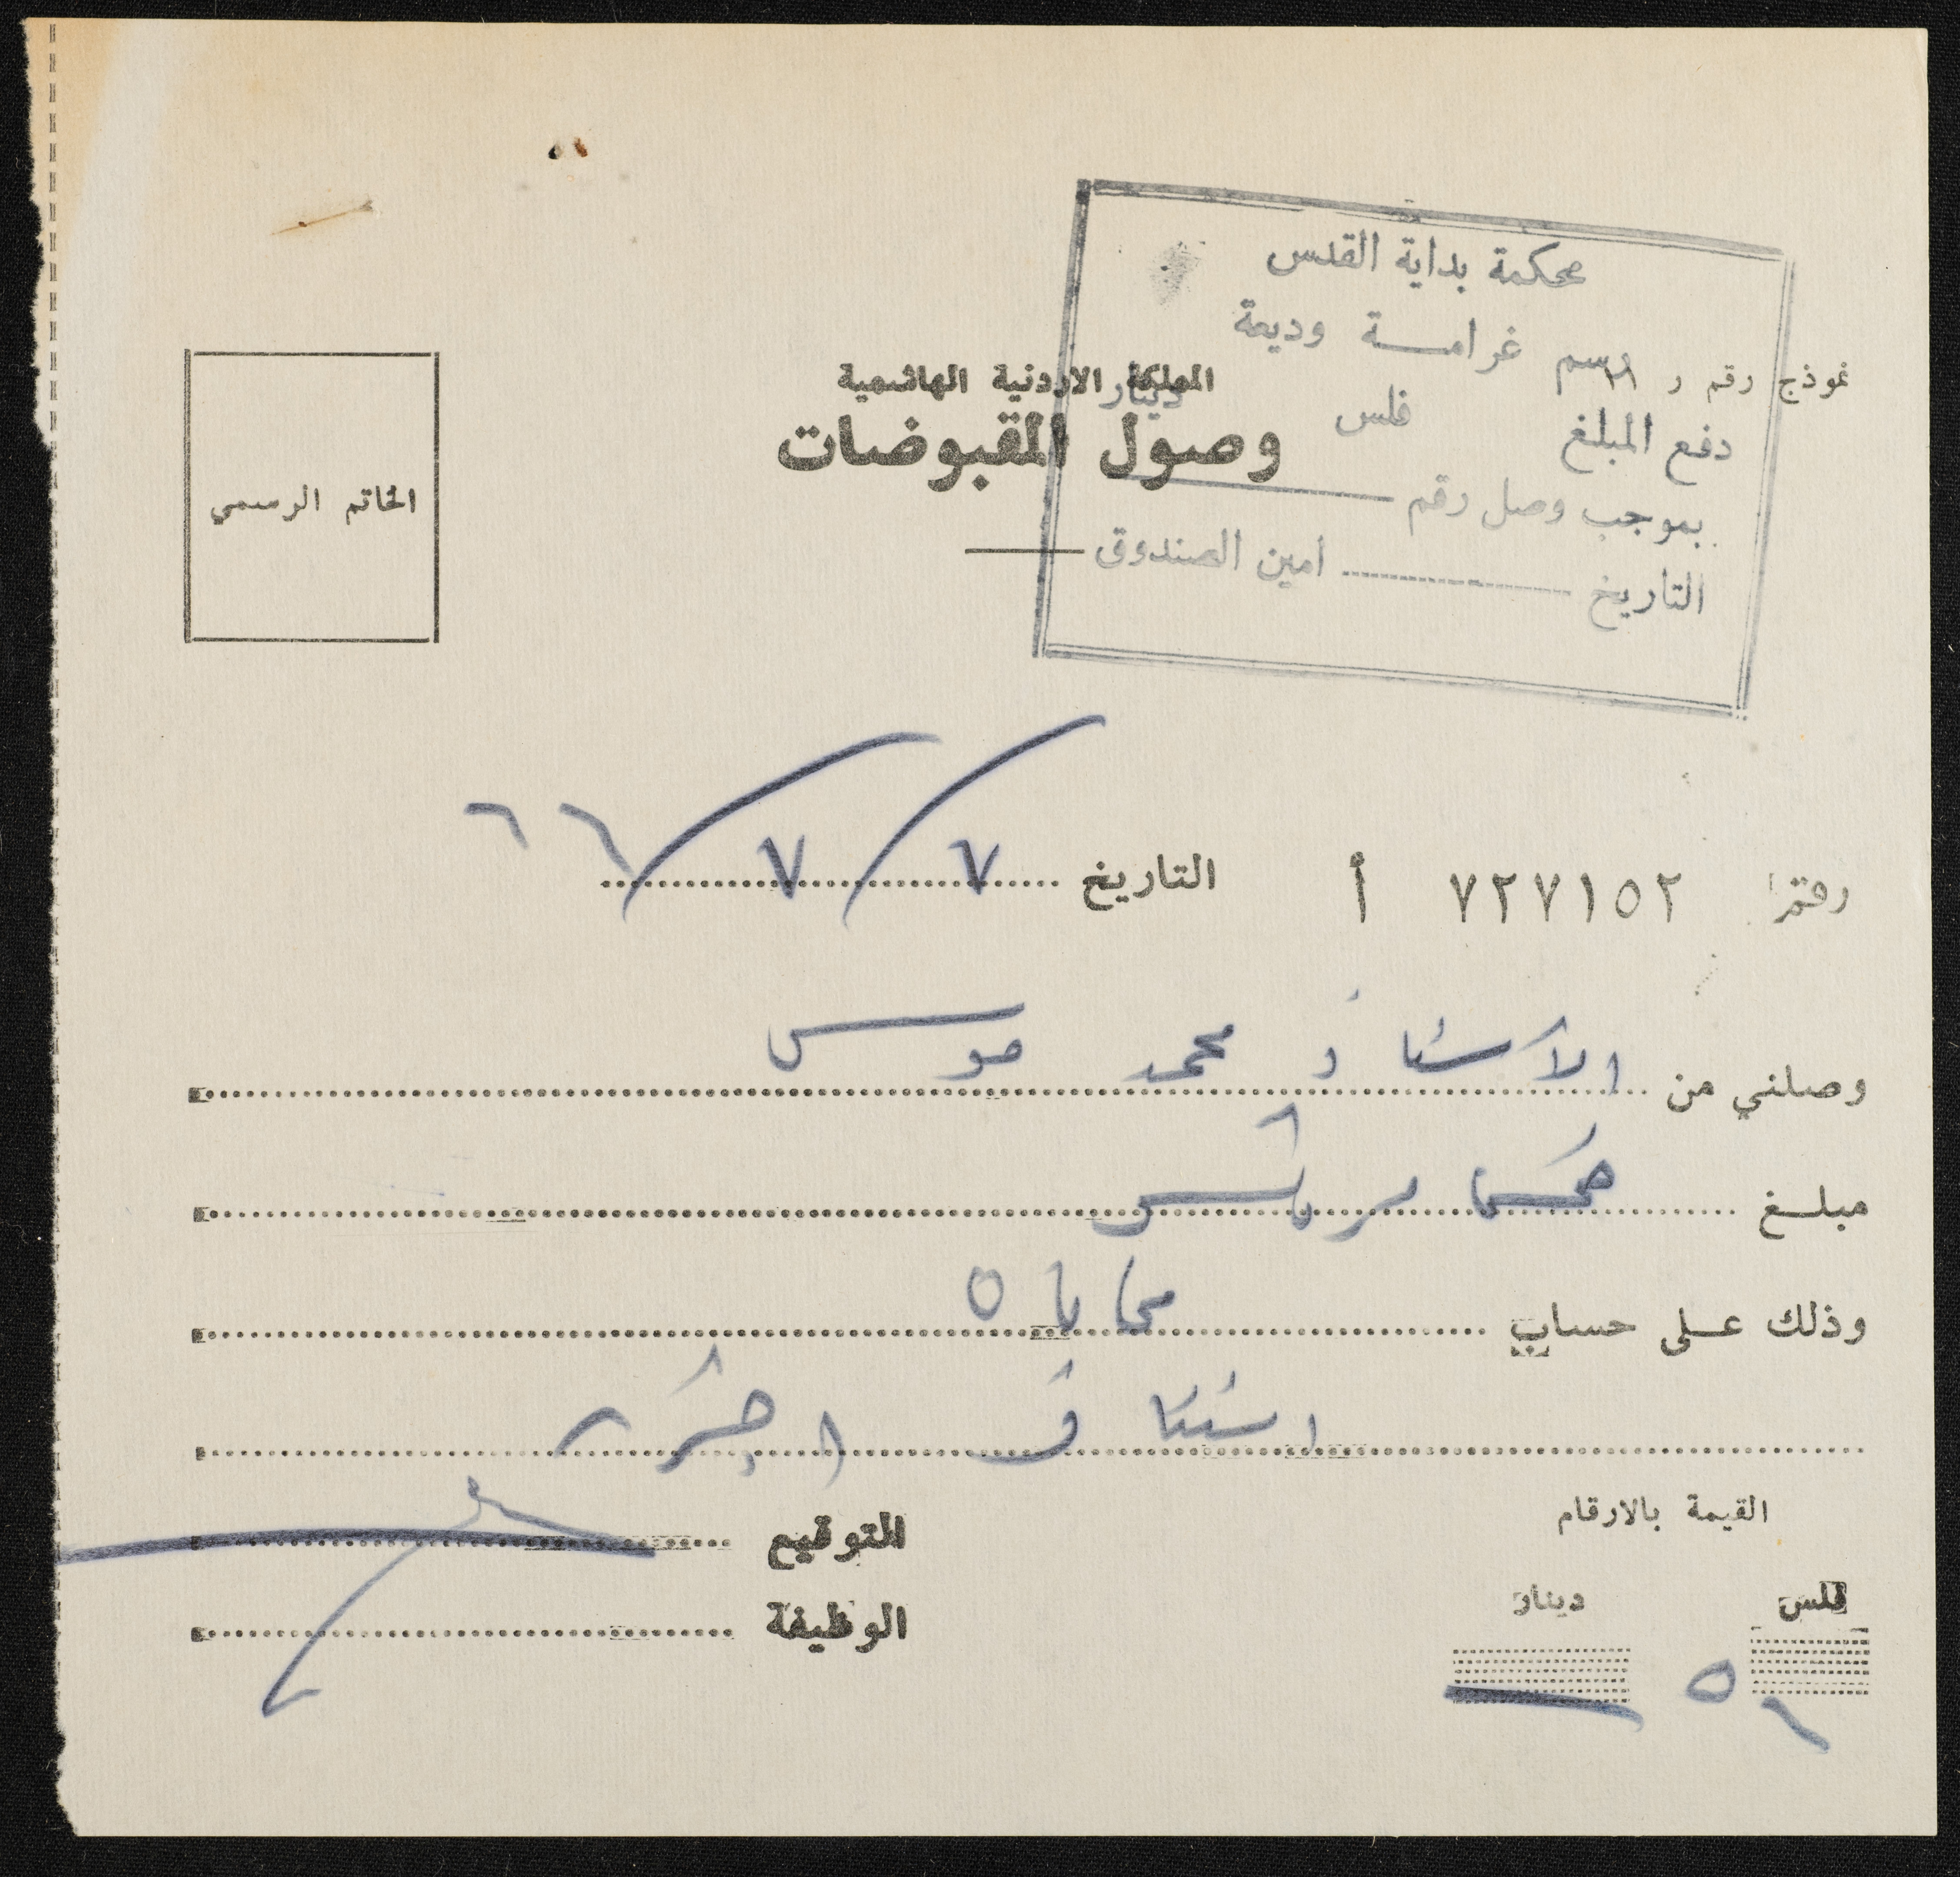 محكمة بداية القدس
رسم غرامة وديعة
نموذج رقم
المملكة الاردنية الهاشمية
دفع المبلغ فلس دينار
وصول المقبوضات
بموجب وصل رقم
الخاتم الرسمي
التاريخ امين الصندوق
رقم ٧٢٧١٥٢ أ التاريخ ٧/٧/٦٦
وصلني من الاستاذ محمد موسى
مبلغ
وذلك على حساب
استئناف
القيمة بالارقام
التوقيع
فلس دينار
الوظيفة